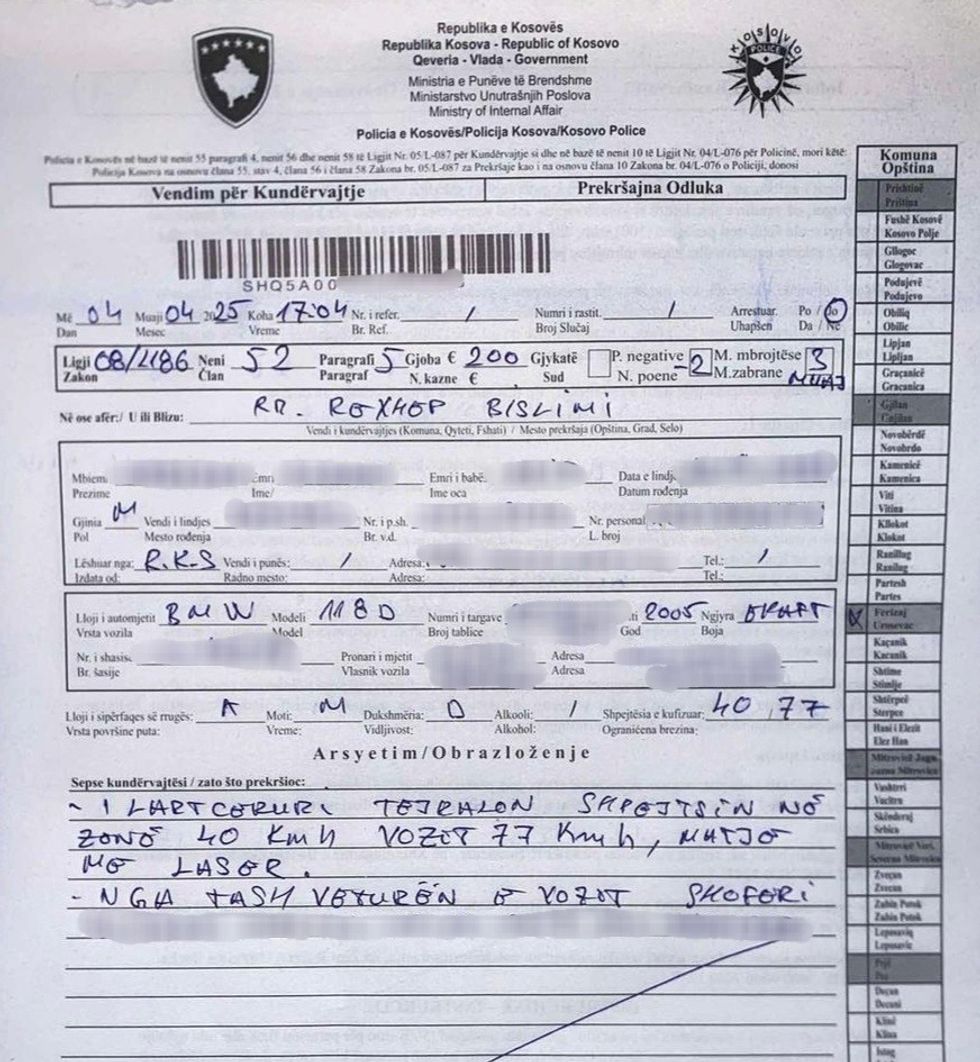 Republika e Kosovës
Republika Kosova - Republic of Kosovo
Qeveria - Vlada - Government
Ministria e Punëve të Brendshme
Ministarstvo Unutrašnjih Poslova
Ministry of Internal Affair
Policia e Kosovës/Policija Kosova/Kosovo Police
KOSOVO
POLICE
Policia e Kosovës në bazë të nenit 55 paragrafi 4, nenit 56 dhe nenit 58 të Ligjit Nr. 05/L-087 për Kundërvajtje si dhe në bazë të nenit 10 të Ligjit Nr. 04/L-076 për Policinë, mori këtë:
Policija Kosova na osnovu člana 55, stav 4, člana 56 i člana 58 Zakona br. 05/L-087 za Prekršaje kao i na osnovu člana 10 Zakona br. 04/L-076 o Policiji, donosi
Vendim për Kundërvajtje Prekršajna Odluka
SHQ5A00
Më 04 Muaji 04 2025 Koha 17:04 Nr. i refer. / Numri i rastit. / Arrestuar. Po / Jo
Dan Mesec Vreme Br. Ref. Broj Slučaj Uhapšen Da / Ne
Ligji 08/L186 Neni 52 Paragrafi 5 Gjoba € 200 Gjykatë P. negative -2 M. mbrojtëse 3
Zakon Član Paragraf N. kazne € Sud N. poene M.zabrane MUAJ
Në ose afër:/ U ili Blizu: RR. REXHEP BISLIMI
Vendi i kundërvajtjes (Komuna, Qyteti, Fshati) / Mesto prekršaja (Opština, Grad, Selo)
Mbiem Emri Emri i babë. Data e lindj.
Prezime Ime/ Ime oca Datum rođenja
Gjinia M Vendi i lindjes Nr. i p.sh. Nr. personal
Pol Mesto rođenja Br. v.d. L. broj
Lëshuar nga: R.K.S Vendi i punës: / Adresa: Tel.: /
Izdata od: Radno mesto: Adresa: Tel.:
Lloji i automjetit BMW Modeli 118D Numri i targave .ti 2005 Ngjyra
Vrsta vozila Model Broj tablice God Boja
Nr. i shasisë Pronari i mjetit Adresa
Br. šasije Vlasnik vozila Adresa
Lloji i sipërfaqes së rrugës: A Moti: M Dukshmëria: D Alkooli: / Shpejtësia e kufizuar: 40,77
Vrsta površine puta: Vreme: Vidljivost: Alkohol: Ograničena brezina:
Arsyetim/Obrazloženje
Sepse kundërvajtësi / zato što prekršioc:
- I LARTCEKUR TEJKALON SHPEJTSIN NË
ZONË 40 Kmh VOZET 77 Kmh, MATJE
ME LASER.
- NGA TASH VETURËN E VOZET SHOFERI
Komuna
Opština
Prishtinë
Priština
Fushë Kosovë
Kosovo Polje
Gllogoc
Glogovac
Podujevë
Podujevo
Obiliq
Obilic
Lipjan
Lipljan
Graçanicë
Gracanica
Gjilan
Gnjilan
Novobërdë
Novobrdo
Kamenicë
Kamenica
Viti
Vitina
Kllokot
Klokot
Ranillug
Ranilug
Partesh
Partes
X Ferizaj
Urosevac
Kaçanik
Kacanik
Shtime
Stimlje
Shtërpcë
Sterpce
Hani i Elezit
Elez Han
Mitrovicë Jugu
Vushtrri
Vucitrn
Skënderaj
Srbica
Mitrovicë Veri.
Severna Mitrovica
Zveçan
Zvecan
Zubin Potok
Zubin Potok
Leposaviq
Leposavic
Pejë
Pec
Deçan
Decani
Klinë
Klina
Istog